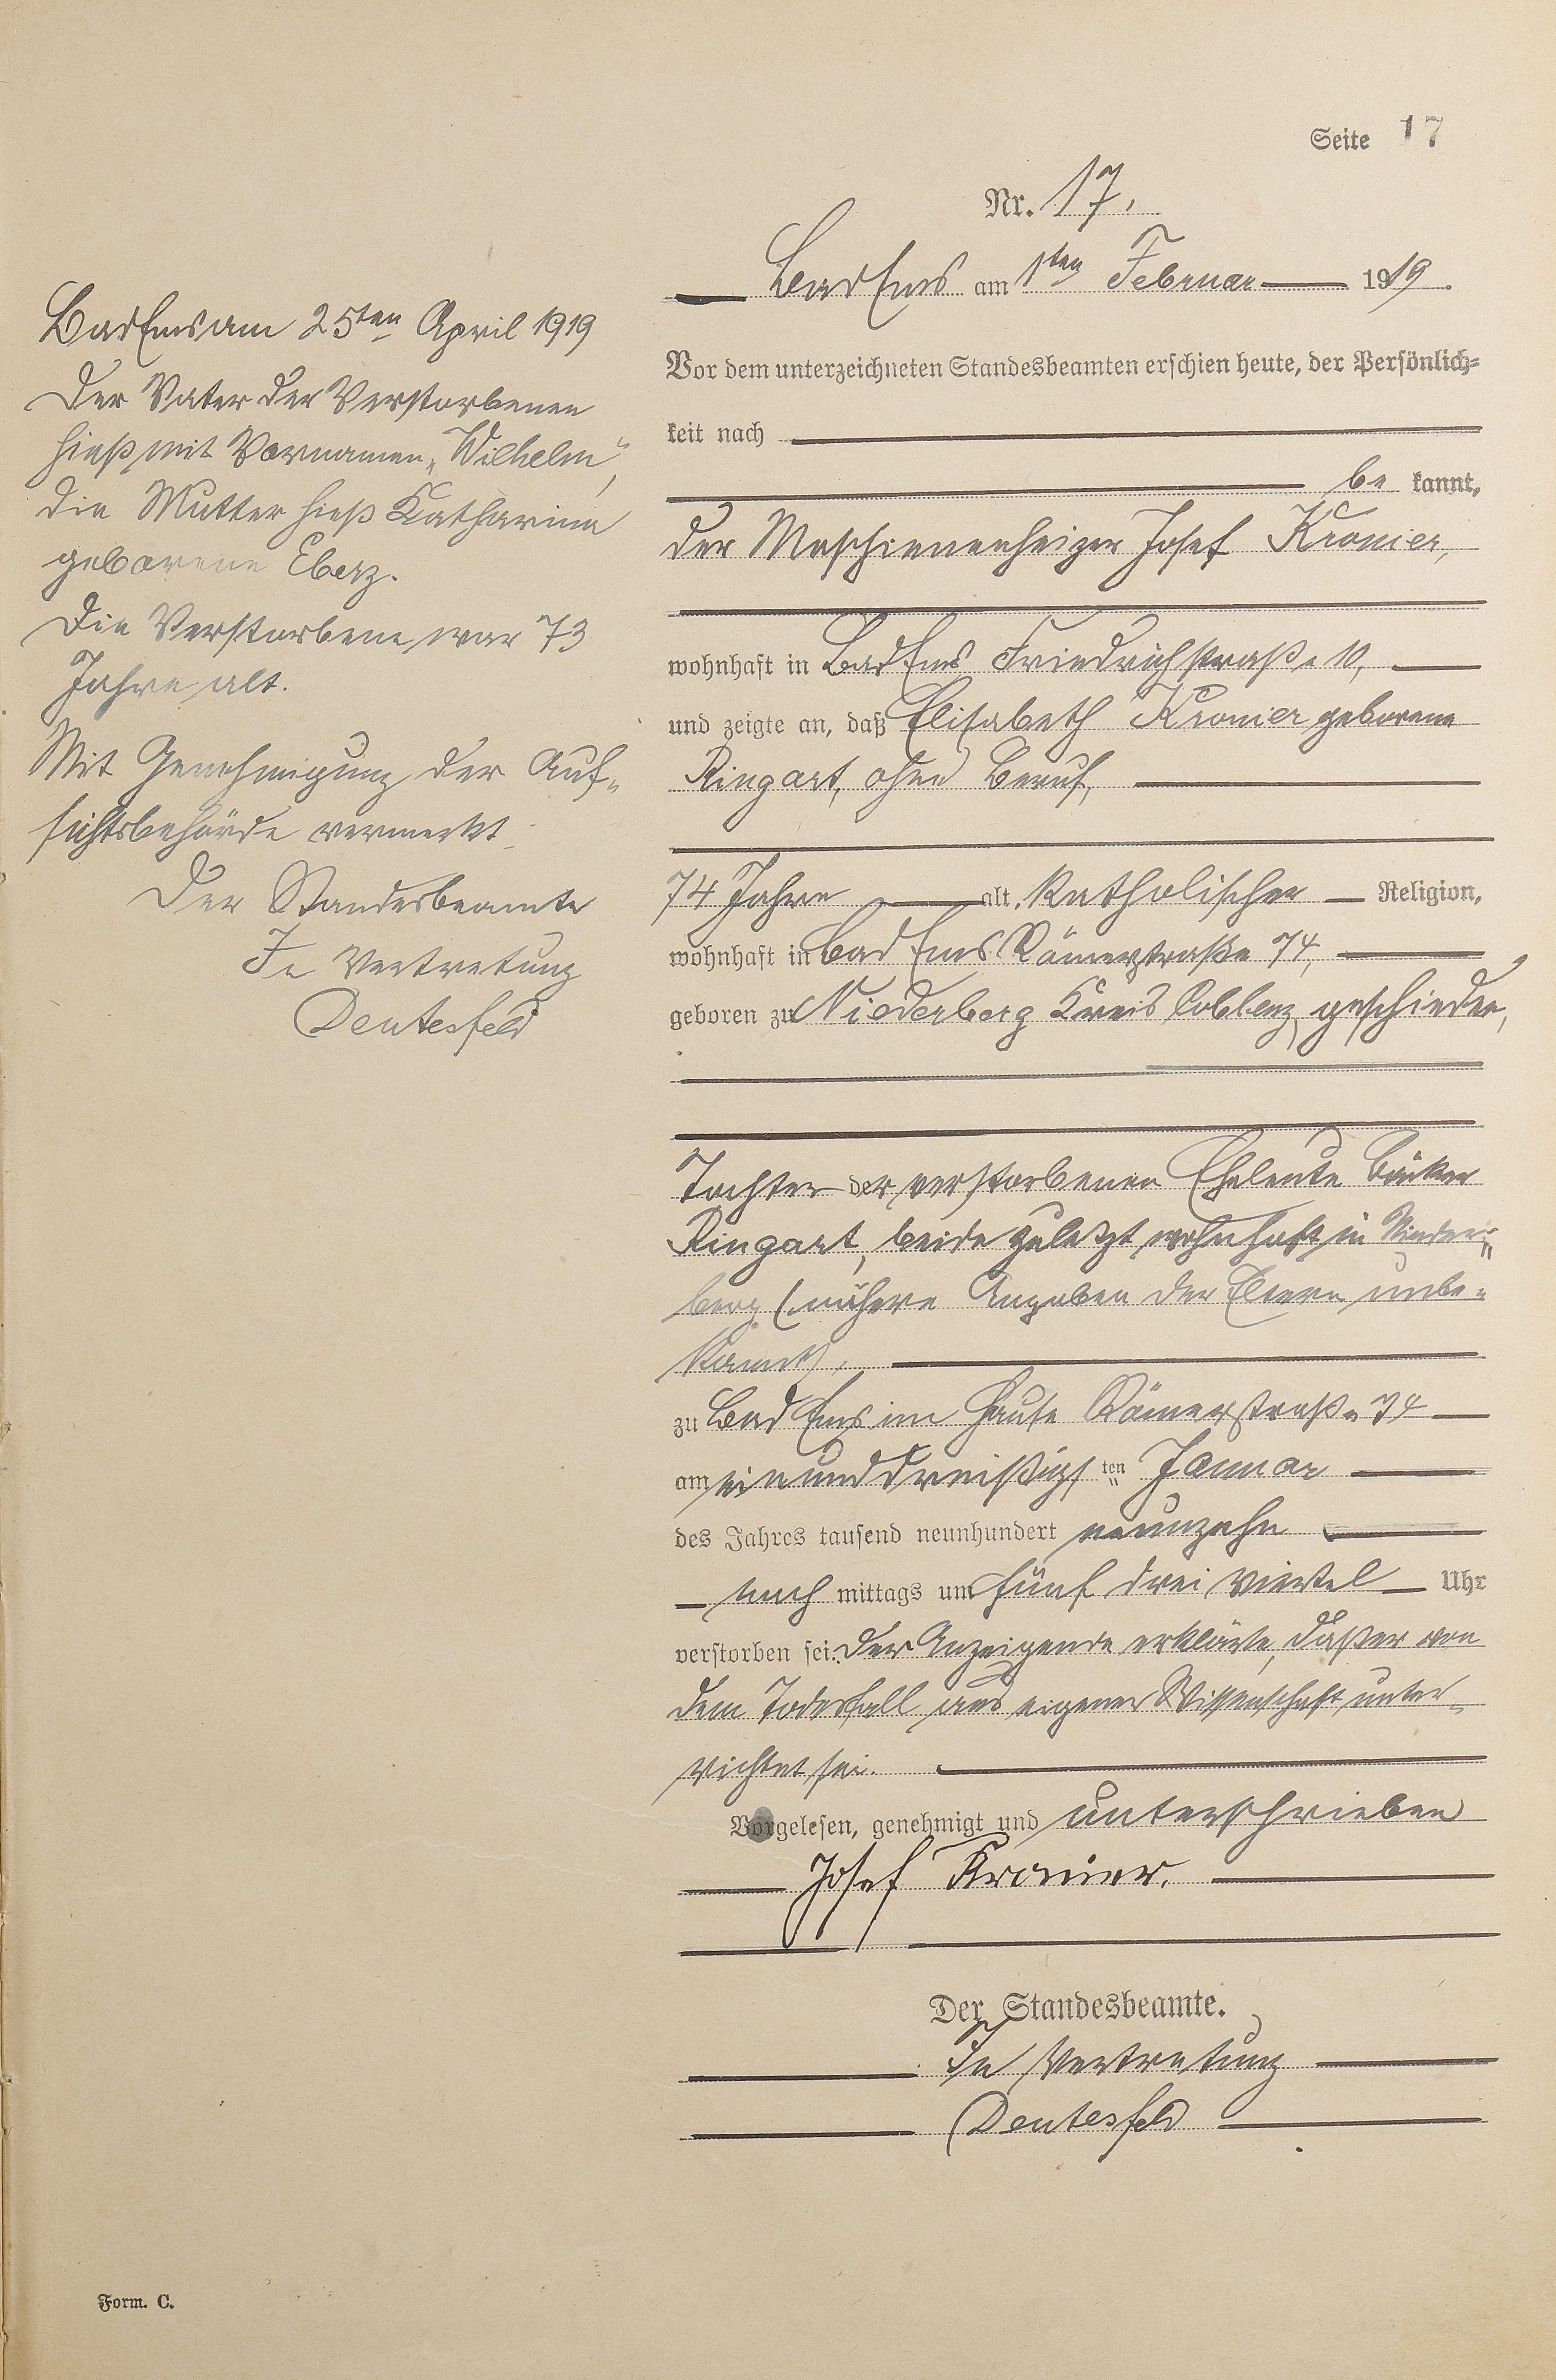 Seite 17
Nr. 17.
Bad Ems am 1ten Februar 1919.
Vor dem unterzeichneten Standesbeamten erschien heute, der Persönlich-
keit nach
be kannt,
der Maschienenheizer Josef Kronier,
wohnhaft in Bad Ems Friedrichstraße 10,
und zeigte an, daß Elisabeth Kronier geborene
Ringart, ohne Beruf,
74 Jahre alt, katholischer Religion,
wohnhaft in Bad Ems Römerstraße 74,
geboren zu Niederberg Kreis Coblenz, geschieden,
Tochter der verstorbenen Eheleute Bäcker
Ringart, beide zuletzt wohnhaft in Nieder-
berg (nähere Angaben der Eltern unbe-
kannt),
zu Bad Ems im Hause Römerstraße 74
am einunddreißigsten Januar
des Jahres tausend neunhundert neunzehn
nach mittags um fünf drei viertel Uhr
verstorben sei. Der Anzeigende erklärte, daß er von
dem Todesfall aus eigener Wissenschaft unter-
richtet sei.
Vorgelesen, genehmigt und unterschrieben
Josef Kronier.
Der Standesbeamte.
In Vertretung
Deutesfeld
Bad Ems am 25ten April 1919
Der Vater der Verstorbenen
hieß mit Vornamen "Wilhelm",
die Mutter hieß Katharina
geborene Eberz.
Die Verstorbene war 73
Jahre alt.
Mit Genehmigung der Auf-
sichtsbehörde vermerkt.
Der Standesbeamte
In Vertretung
Deutesfeld
Form. C.